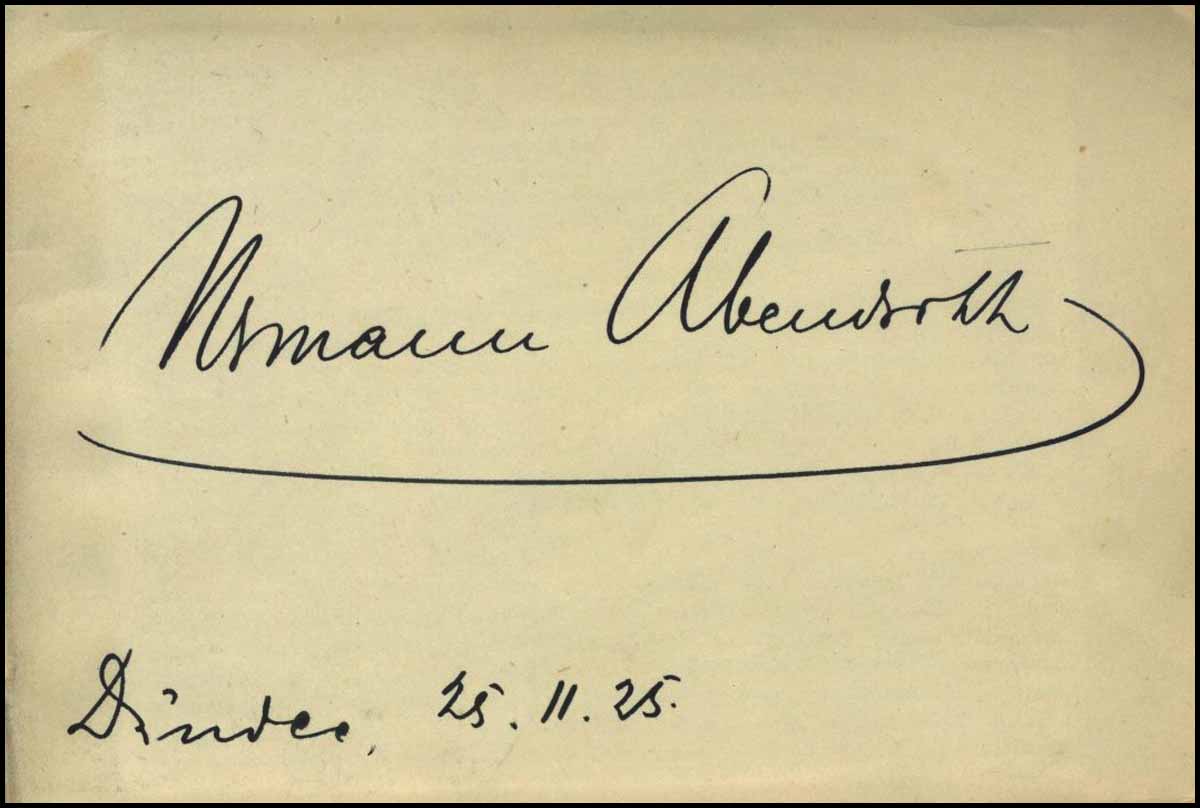 Hermann Abendroth
Dundee, 25.11.25.